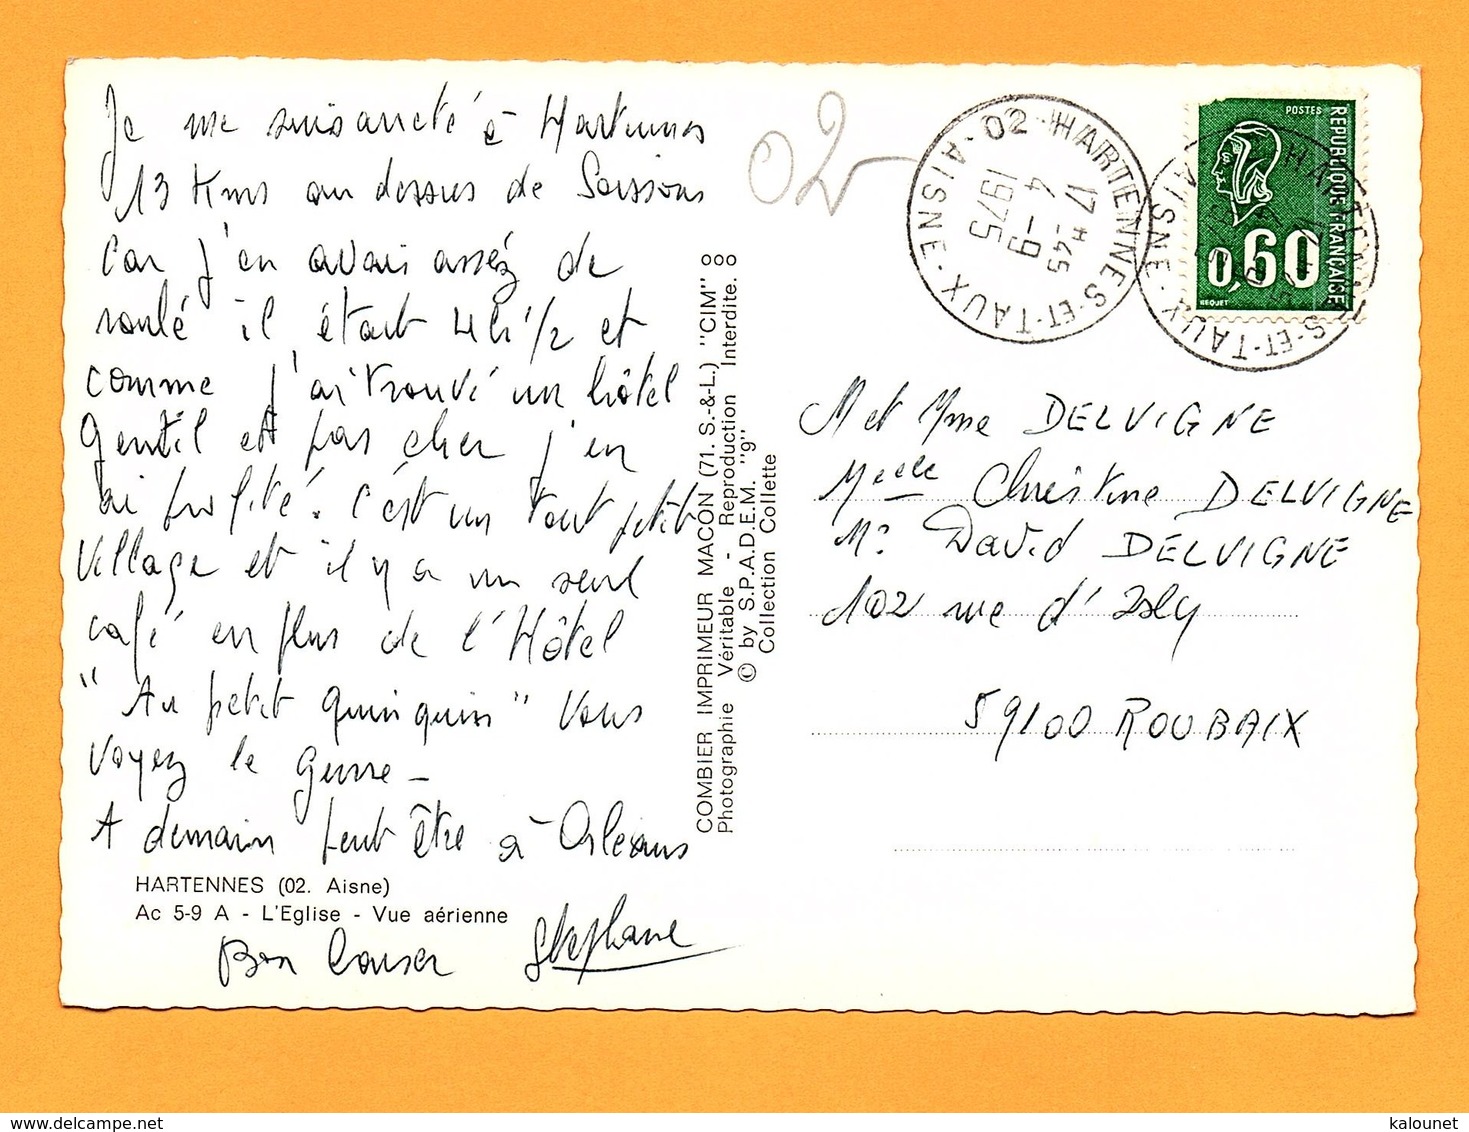 Je me suis arreté à Hartennes
13 Kms au dessus de Soissons
Car j'en avais asséz de
roulé il était 4h 1/2 et
comme j'ai trouvé un hôtel
Gentil et pas cher j'en
ai profité. C'est un tout petit
village et il y a un seul
café en plus de l'Hôtel
"Au petit quinquin" Vous
voyez le genre -
A demain peut être à Orléans
HARTENNES (02. Aisne)
Ac 5-9 A - L'Eglise - Vue aérienne
Bon Stéphane
COMBIER IMPRIMEUR MACON (71. S.-&-L.) "CIM"
Photographie Véritable - Reproduction Interdite.
© by S.P.A.D.E.M. "9"
Collection Collette
02
02 - HARTENNES-ET-TAUX - AISNE
17 H 45
4 - 9
1975
POSTES
REPUBLIQUE FRANÇAISE
0,60
BEQUET
HARTENNES-ET-TAUX - AISNE
M et Mme DELVIGNE
Melle Christine DELVIGNE
Mr David DELVIGNE
102 rue d'Isly
59100 ROUBAIX
kalounet